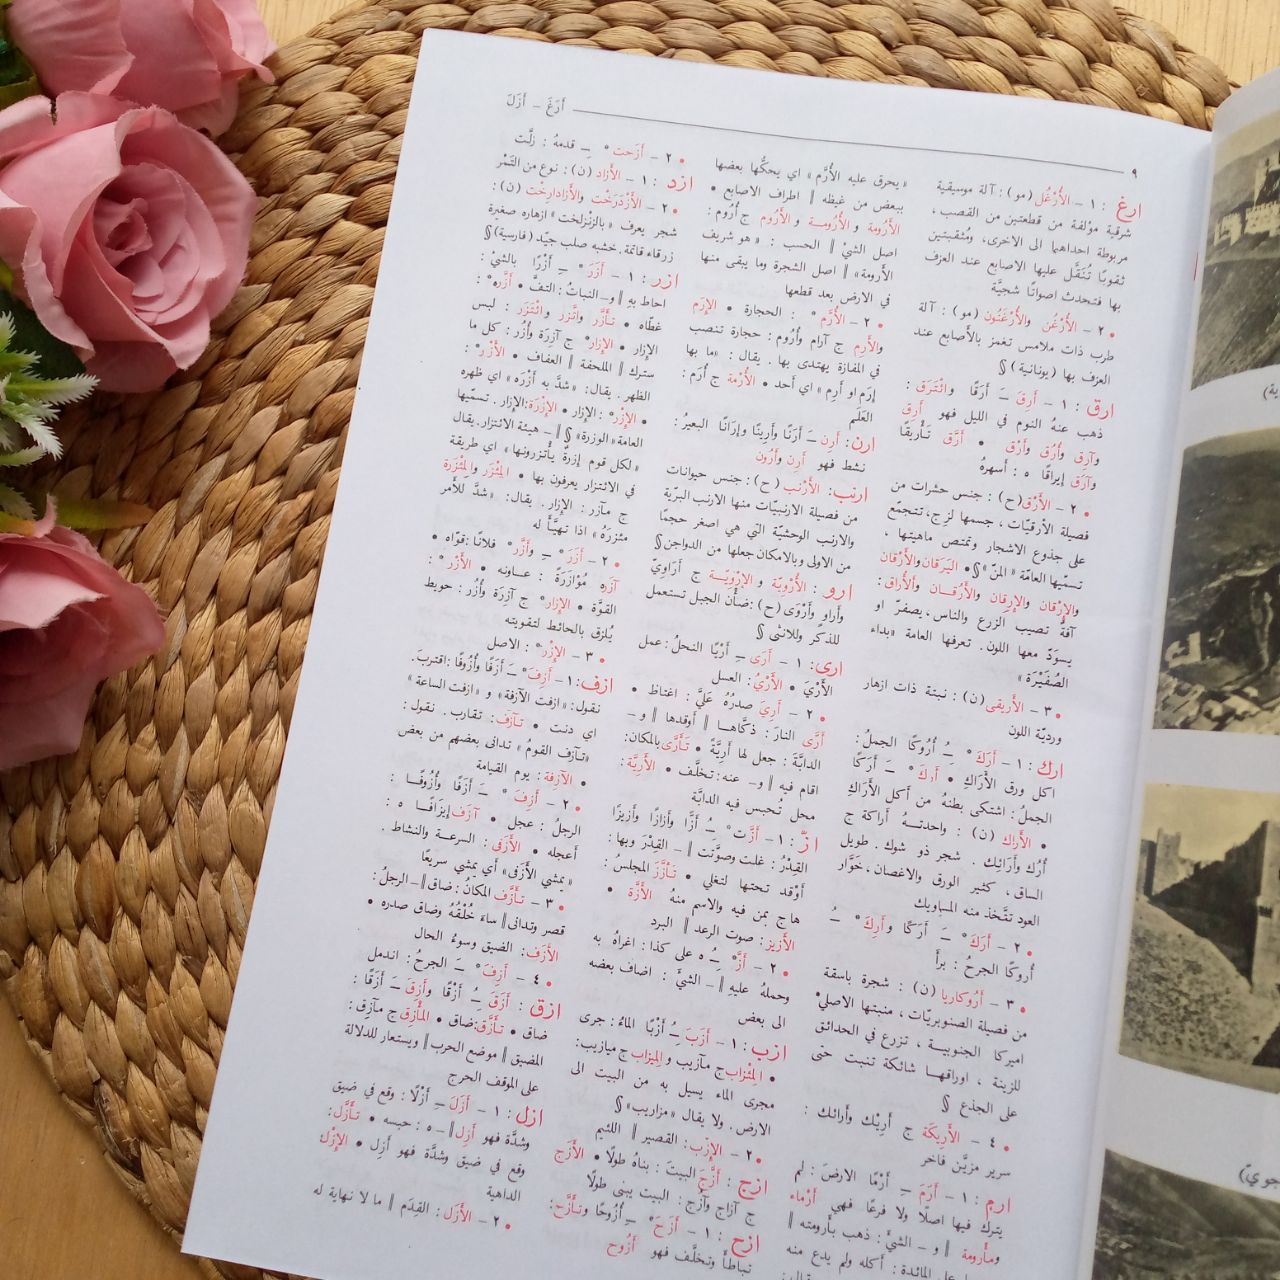 أَرَغَ – أَزَلَ
٩
ارغ : ١ – الأُرْغُل (مو) : آلة موسيقية
شرقية مؤلفة من قطعتين من القصب ،
مربوطة احداهما الى الاخرى، ومُثقبتين
ثقوبًا تُنَقَّل عليها الاصابع عند العزف
بها فتحدث اصواتًا شجيَّة
• ٢ – الأُرْغُن والأُرْغَنُون (مو) : آلة
طرب ذات ملامس تغمز بالأصابع عند
العزف بها (يونانية) §
ارق : ١ – أَرِقَ ــَ أَرَقًا وائْتَرَقَ :
ذهب عنهُ النوم في الليل فهو أَرِق
وآرِق وأُرُق وأَرْق • أَرَّق تأْريقًا
وآرَق إيراقًا ه : أسهرهُ
• ٢ – الأَرْق (ح) : جنس حشرات من
فصيلة الأرقيّات ، جسمها لزج، تتجمّع
على جذوع الاشجار وتمتص ماهيتها ،
تسمّيها العامّة « المنّ » § • اليَرَقان والأَرَقان
والإِرْقان والإِرِقان والأَرْقــان والأُراق :
آفةٌ تصيب الزرع والناس ، يصفرّ او
يسوَدّ معها اللون . تعرفها العامة « بداء
الصُفَيْرَة »
• ٣ – الأَريقى (ن) : نبتة ذات ازهار
ورديّة اللون
ارك : ١ – أَرَكَ ــُ أُرُوكًا الجملُ :
اكل ورق الأَراك • أَرِكَ ــَ أَرَكًا
الجملُ : اشتكى بطنهُ من أكل الأَراك
• الأَراك (ن) : واحدتــهُ أراكة ج
أُرُك وأَرائِك . شجر ذو شوك . طويل
الساق ، كثير الورق والاغصان ، خَوَّار
العود تتَّخذ منه المساويك
• ٢ – أَرَكَ ــِ أَرَكًا وأَرِكَ ــُ
أُروكًا الجرحُ : برأ
• ٣ – أَرُوكاريا (ن) : شجرة باسقة
من فصيلة الصنوبريّات ، منبتها الاصلي
اميركا الجنوبيــة ، تزرع في الحدائق
للزينة ، اوراقهــا شائكة تنبت حتى
على الجذع §
• ٤ – الأَرِيكَة ج أَرِيْك وأَرائك :
سرير مزيَّن فاخر
ارم : ١ – أَرَمَ ــِ أَرْمًا الارضَ : لم
يترك فيها اصلًا ولا فرعًا فهي أَرْماء
ومأْرومة ‖ و – الشيَ : ذهب بأَرومته ‖
على المائدة : أكله ولم يدع منه
« يحرق عليه الأُرَّم » اي يحكُّها بعضها
ببعض من غيظه ‖ اطراف الاصابع •
الأَرُومة والأُرُومــة والأَرُوم ج أُرُوم :
اصل الشيْ ‖ الحسب : « هو شريف
الأَرومة » ‖ اصل الشجرة وما يبقى منها
في الارض بعد قطعها
• ٢ – الأُرَّم : الحجارة • الإِرَم
والأَرِم ج آرام وأُرُوم : حجارة تنصب
في المفازة يهتدى بها . يقال : « ما بها
إِرَم او أَرِم » اي أحد • الأُرْمَة ج أُرَم :
العَلَم
ارن : أَرِن ــَ أَرَنًا وأَرِينًا وإِرَانًا البعير :
نشط فهو أَرِن وأَرُون
ارنب : الأَرْنَب (ح) : جنس حيوانات
من فصيلة الارنبيّات منها الارنب البريّة
والارنب الوحشيّة التي هي اصغر حجمًا
من الاولى وبالامكان جعلها من الدواجن §
ارو : الأُرْوِيَّة والإِرْوِيَّــة ج أَرَاوِيّ
وأَراوٍ وأَرْوَى (ح) : ضأن الجبل تستعمل
للذكر وللاثى §
ارى : ١ – أَرَى ــِ أَرْيًا النحلُ : عمل
الأَرْيَ • الأَرْيُ : العسل
• ٢ – أَرِيَ صدرُهُ عَلَيَّ : اغتاظ •
أَرَّى النارَ : ذكَّاهــا ‖ أوقدها ‖ و –
الدابَّةَ : جعل لها أَرِيَّةً • تأَرَّى بالمكان :
اقام فيه ‖ و – عنه : تخلَّف • الأَرِيَّة :
محل تُحبس فيه الدابَّة
ازّ : ١ – أَزَّت ــُ أَزًّا وأَزازًا وأَزيزًا
القِدْرُ : غلت وصوَّتت ‖ – القِدْرَ وبها :
أوقد تحتها لتغلي • تَأَزَّزَ المجلسُ :
هاج بمن فيه والاسم منهُ الأَزَّة •
الأَزيز : صوت الرعد ‖ البرد
• ٢ – أَزَّ ــُ ه على كذا : اغراهُ به
وحملهُ عليهِ ‖ – الشيَ : اضاف بعضه
الى بعض
ازب : ١ – أَزَبَ ــُ أَزْبًا الماءُ : جرى
• المِئْزاب ج مآزيب والمِيْزاب ج ميازيب :
مجرى الماء يسيل به من البيت الى
الارض . ولا يقال « مزاريب » §
• ٢ – الإِزْب : القصير ‖ اللئيم
ازج : أَزَّج البيتَ : بناهُ طولًا • الأَزَج
ج آزاج وآزُج : البيت يبنى طولًا
ازح : ١ – أَزَحَ ــِ أُزُوحًا وتأَزَّح :
تباطأ وتخلَّف فهو أَزُوح
• ٢ – أَزَحت ــِ قدمهُ : زلَّت
ازد : ١ – الأَزَاد (ن) : نوع من التَمْر
• ٢ – الأَزْدَرَخْت والأَزَادارخْت (ن) :
شجر يعرف « بالزَّنْزلخت » ازهاره صغيرة
زرقاء قاتمة . خشبه صلب جيّد (فارسية) §
ازر : ١ – أَزَرَ ــِ أَزْرًا بالشيْ :
احاط بهِ ‖ و – النباتُ : التفَّ • أَزَّره :
غطّاه • تأَزَّر واتَّزر وائْتَزَر : لبس
الإِزار • الإِزار ج آزِرَة وأُزُر : كل ما
سترك ‖ الملحفة ‖ العفاف • الأَزْر :
الظهر . يقال : « شدَّ به أَزْرَه » اي ظهره
• الإِزْر : الإِزار • الإِزْرَة : الإِزار . تسمّيها
العامة « الوزرة » § ‖ – هيئة الائتزار . يقال
« لكل قوم إِزرةٌ يأْتزرونها » اي طريقة
في الائتزار يعرفون بها • المِئْزَر والمِئْزَرة
ج مآزر : الإِزار . يقال : « شدَّ للأمر
مئزرَه » اذا تهيَّأ له
• ٢ – أَزَرَ ــِ وأَزَّر فلانًا : قوّاه •
آزَره مُؤَازرَةً : عــاونه • الأَزْر :
القوَّة • الإِزار ج آزِرَة وأُزُر : حويط
يُلزق بالحائط لتقويته
• ٣ – الإِزْر : الاصل
ازف : ١ – أَزِفَ ــَ أَزَفًا وأُزُوفًا : اقترب .
نقول : « ازفت الآزفة » و « ازفت الساعة »
اي دنت • تآزَف : تقارب . نقول :
« تـآزف القومُ » تدانى بعضهم من بعض
• الآزِفة : يوم القيامة
• ٢ – أَزِفَ ــَ أَزَفًا وأُزُوفًــا :
الرجلُ : عجل • آزَف إيزافًــا ه :
أعجله • الأَزَفى : السرعــة والنشاط .
« يمشي الأَزَفى » أي يمشي سريعًا
• ٣ – تَأَزَّف المكانُ : ضاق ‖ – الرجلُ :
قصر وتدانى ‖ ساءَ خُلْقُهُ وضاق صدره •
الأَزَف : الضيق وسوءُ الحال
• ٤ – أَزِفَ ــَ الجرحُ : اندمل
ازق : أَزَقَ ــُ أَزْقًا وأَزِقَ ــَ أَزَقًا :
ضاق • تأَزَّق : ضاق • المَأْزِق ج مآزِق :
المضيق ‖ موضع الحرب ‖ ويستعار للدلالة
على الموقف الحرج
ازل : ١ – أَزَلَ ــِ أَزْلًا : وقع في ضيق
وشدَّة فهو أَزِل ‖ – ه : حبسه • تأَزَّل :
وقع في ضيق وشدَّة فهو أَزِل • الإِزْل
الداهية
• ٢ – الأَزَل : القِدَم ‖ ما لا نهاية له